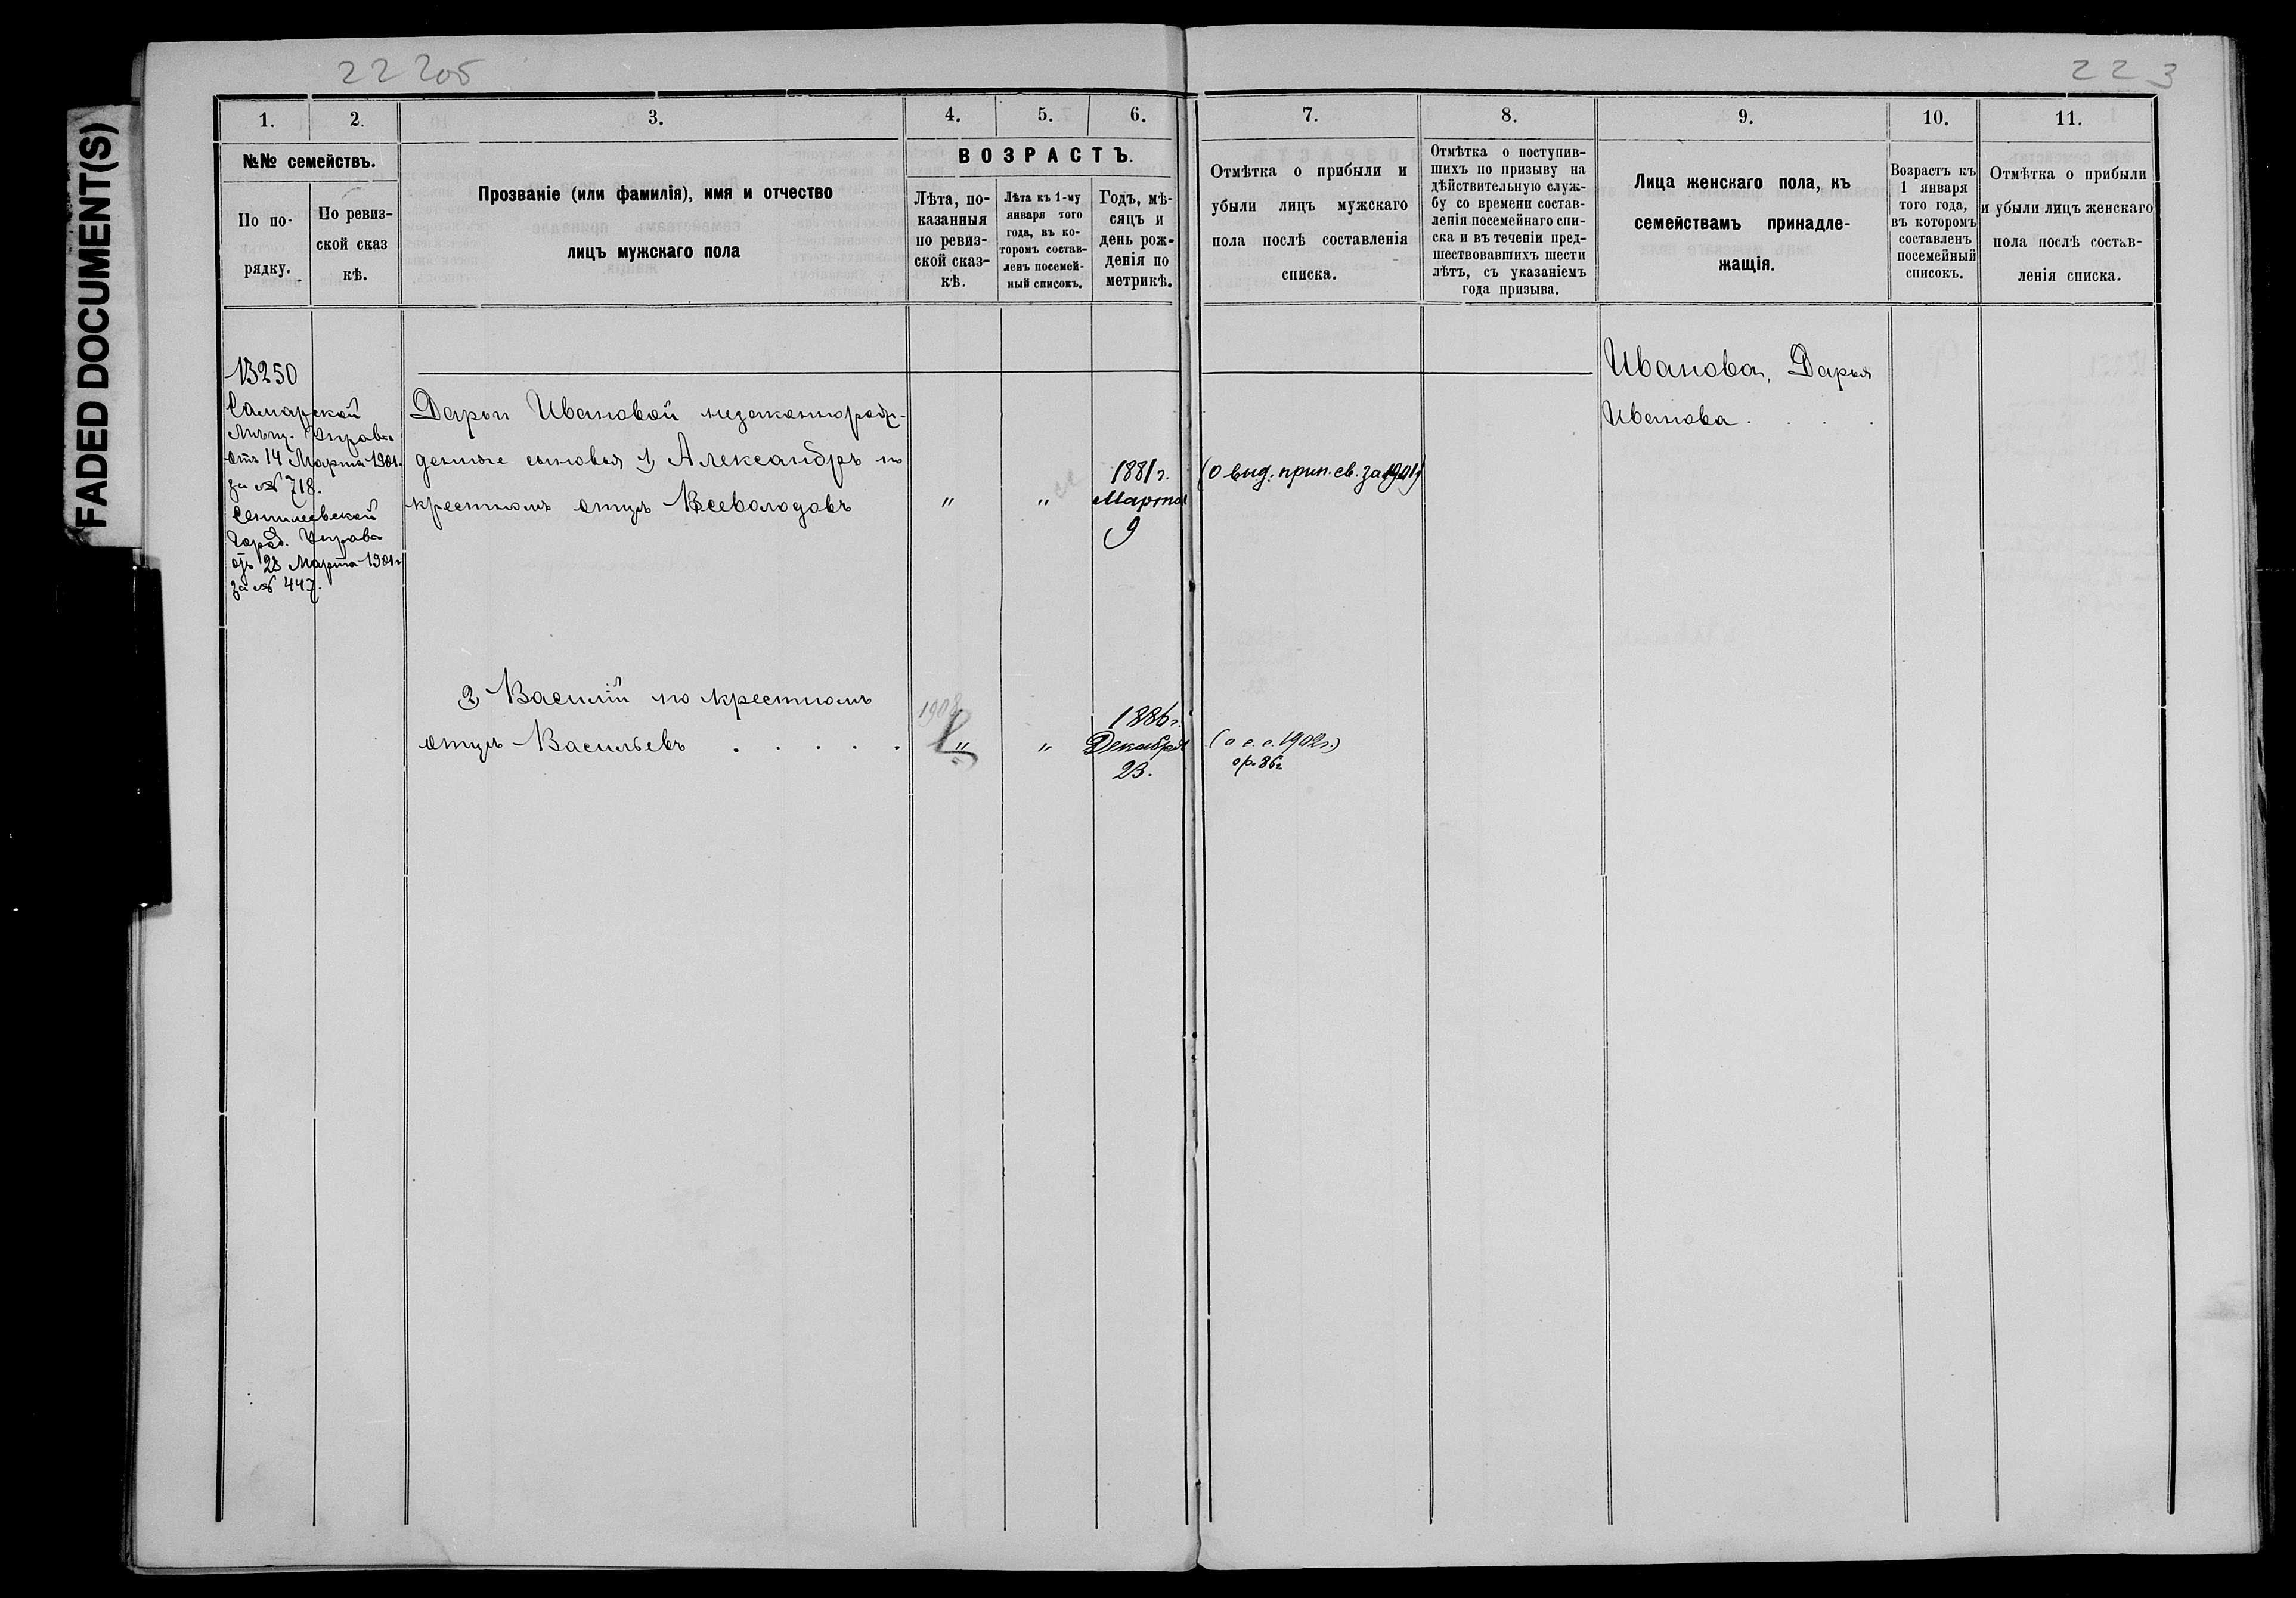 22 205
22 3
FADED DOCUMENT(S)
1.
2.
3.
4.
5.
6.
7.
8.
9.
10.
11.
№№ семействъ.
По по-
рядку.
По ревиз-
ской сказ
кѣ.
Прозваніе (или фамилія), имя и отчество
лицъ мужскаго пола
ВОЗРАСТЪ.
Лѣта, по-
казанныя
по ревиз-
ской сказ-
кѣ.
Лѣта къ 1-му
января того
года, въ ко-
торомъ состав-
ленъ посемей-
ный списокъ.
Годъ, мѣ-
сяцъ и
день рож-
денія по
метрикѣ.
Отмѣтка о прибыли и
убыли лицъ мужскаго
пола послѣ составленія
списка.
Отмѣтка о поступив-
шихъ по призыву на
дѣйствительную служ-
бу со времени состав-
ленія посемейнаго спи-
ска и въ теченіи пред-
шествовавшихъ шести
лѣтъ, съ указаніемъ
года призыва.
Лица женскаго пола, къ
семействамъ принадле-
жащія.
Возрастъ къ
1 января
того года,
въ которомъ
составленъ
посемейный
списокъ.
Отмѣтка о прибыли
и убыли лицъ женскаго
пола послѣ состав-
ленія списка.
13250
Самарской
Мѣщ. Управы
отъ 14 Марта 1901г.
за № 718.
Сенгилеевской
Город. Управы
отъ 28 Марта 1901г.
за № 447.
Дарьи Ивановой незаконнорож-
денные сыновья 1, Александръ по
крестномъ отцѣ Всеволодовъ
" "
1881 г.
Марта
9
(о выд. прип. св. за 1901)
Иванова, Дарья
Иванова . . . .
2, Василій по крестномъ
отцѣ Васильевъ . . . . .
1908
" "
1886 г.
Декабря
23.
(о с. с. 1902г.)